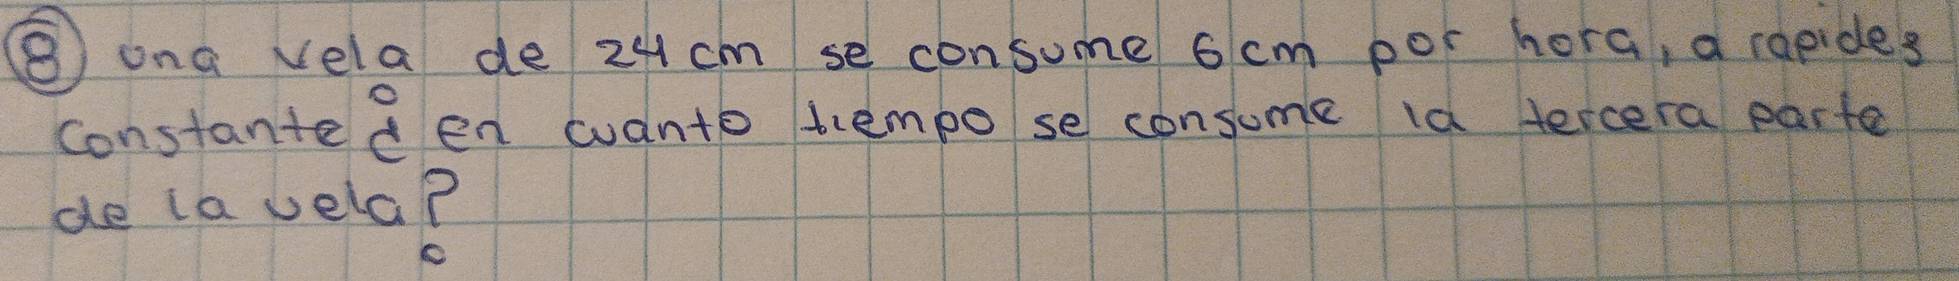 ⑧ una vela de 24 cm se consume 6 cm por hora, a rapides
constante ¿ en cuanto tiempo se consume la tercera parte
de la vela?